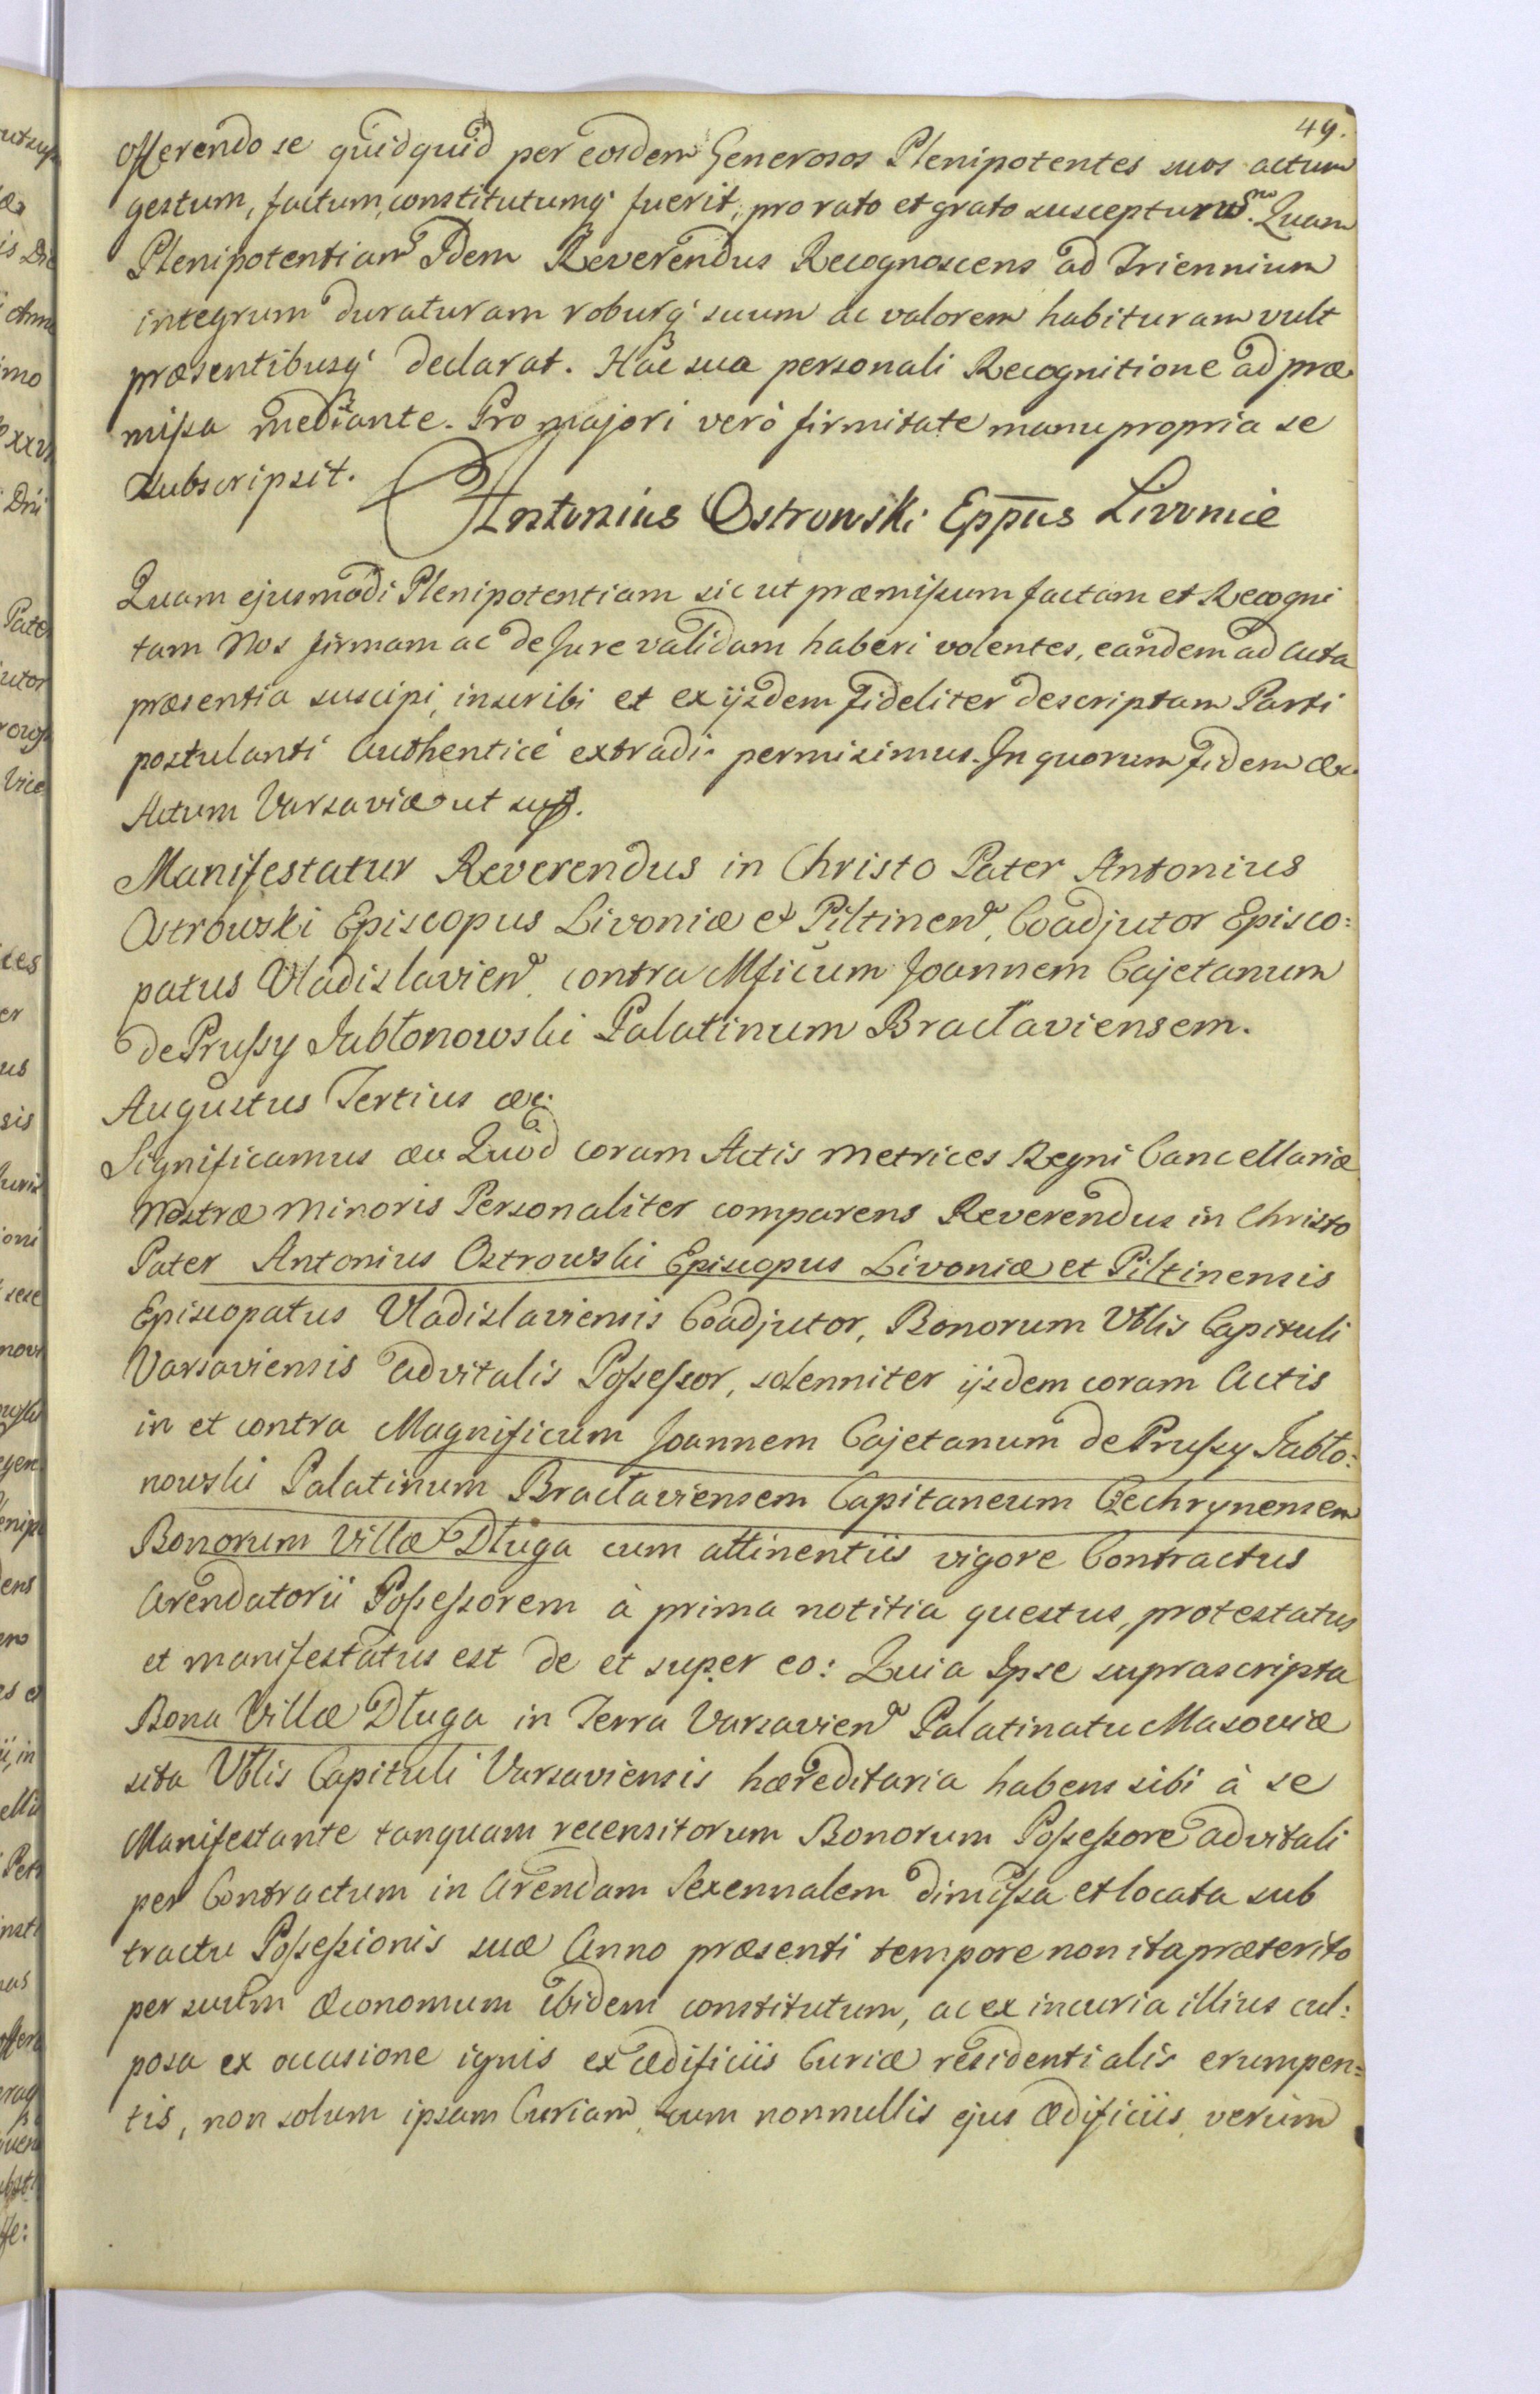 49.
offerendo se quidquid per eosdem Generosos Plenipotentes suos actum
gestum, factum, constitutumq́ fuerit, pro rato et grato suscepturum. Quam
Plenipotentiam Idem Reverendus Recognoscens ad Triennium
integrum duraturam roburq́ suum ac valorem habituram vult
præsentibusq́ declarat. Hac sua personali Recognitione ad præ
mißa mediante. Pro majori verò firmitate manu propria se
subscripsit.
Antonius Ostrowski Eppus Livonie
Quam ejusmodi Plenipotentiam sic ut præmißum factam et Recogni
tam Nos firmam ac de Jure validam haberi volentes, eandem ad Acta
præsentia suscipi, inscribi et ex ijsdem fideliter descriptam Parti
postulanti Authenticé extradi permisimus. In quorum fidem &c.
Actum Varsaviæ ut sup.
Manifestatur Reverendus in Christo Pater Antonius
Ostrowski Episcopus Livoniæ et Piltinen, Coadjutor Episco:
patus Vladislavien. contra Mficum Joannem Cajetanum
de Prußy Jabłonowski Palatinum Braclaviensem.
Augustus Tertius &c.
Significamus &c Quod coram Actis Metrices Regni Cancellariæ
Nostræ Minoris Personaliter comparens Reverendus in Christo
Pater Antonius Ostrowski Episcopus Livoniæ et Piltinensis
Episcopatus Vladislaviensis Coadjutor, Bonorum Vblis Capituli
Varsaviensis advitalis Poßeßor, solenniter ijsdem coram Actis
in et contra Magnificum Joannem Cajetanum de Prußy Jabło:
nowski Palatinum Braclaviensem Capitaneum Czechrynensem
Bonorum Villæ Długa cum attinentiis vigore Contractus
Arendatorii Poßeßorem à prima notitia questus, protestatus
et manifestatus est de et super eo: Quia Ipse suprascripta
Bona Villæ Długa in Terra Varsavien Palatinatu Masoviæ
sita Vblis Capituli Varsaviensis hæreditaria habens sibi à se
Manifestante tanquam recensitorum Bonorum Poßeßore advitali
per Contractum in Arendam Sexennalem dimißa et locata sub
tractu Poßeßionis suæ Anno præsenti tempore non ita præterito
per suum Œconomum ibidem constitutum, ac ex incuria illius cul:
posa ex occasione ignis ex ædificiis Curiæ residentialis erumpen:
tis, non solum ipsam Curiam, cum nonnullis ejus Ædificiis, verùm